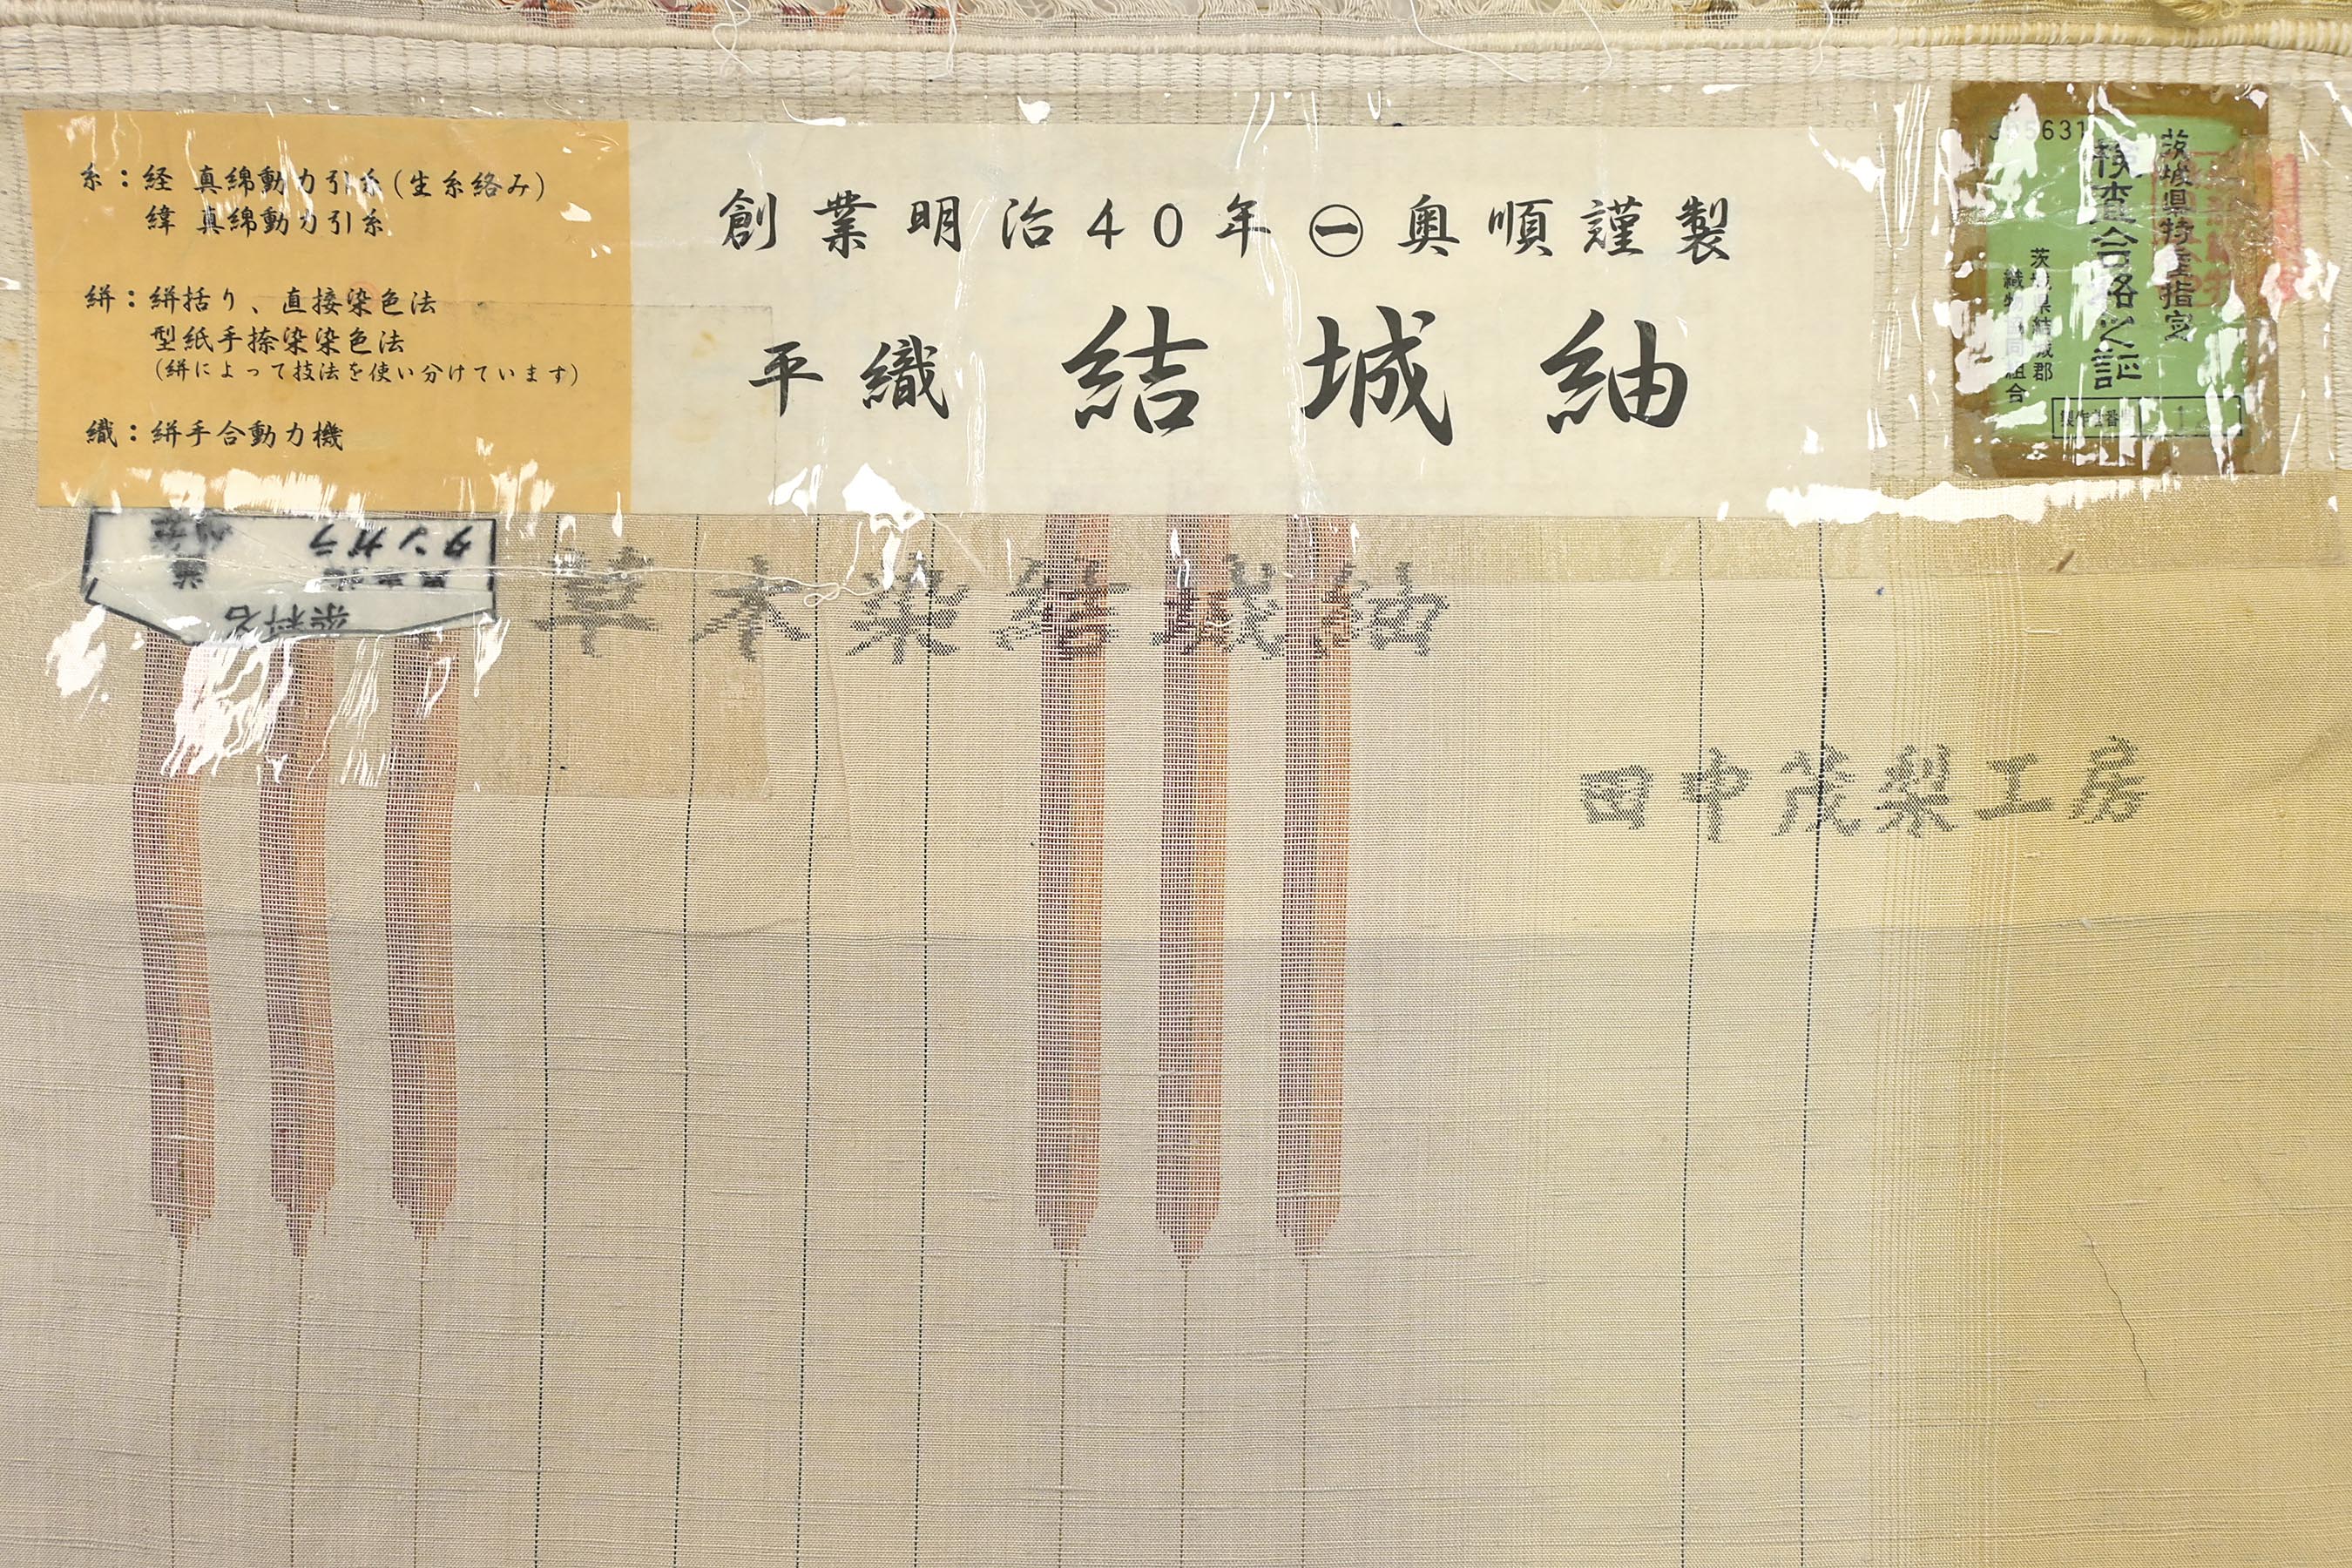 糸：経 真綿動力引糸(生糸絡み)
緯 真綿動力引糸
絣：絣括り、直接染色法
型紙手捺染染色法
(絣によって技法を使い分けています)
織：絣手合動力機
創業明治40年㊀奥順謹製
平織 結城紬
茨城県特産指定
検査合格之証
茨城県結城郡
織物協同組合
製作者番号
染料名
タンガラ
草木染結城紬
田中茂梨工房